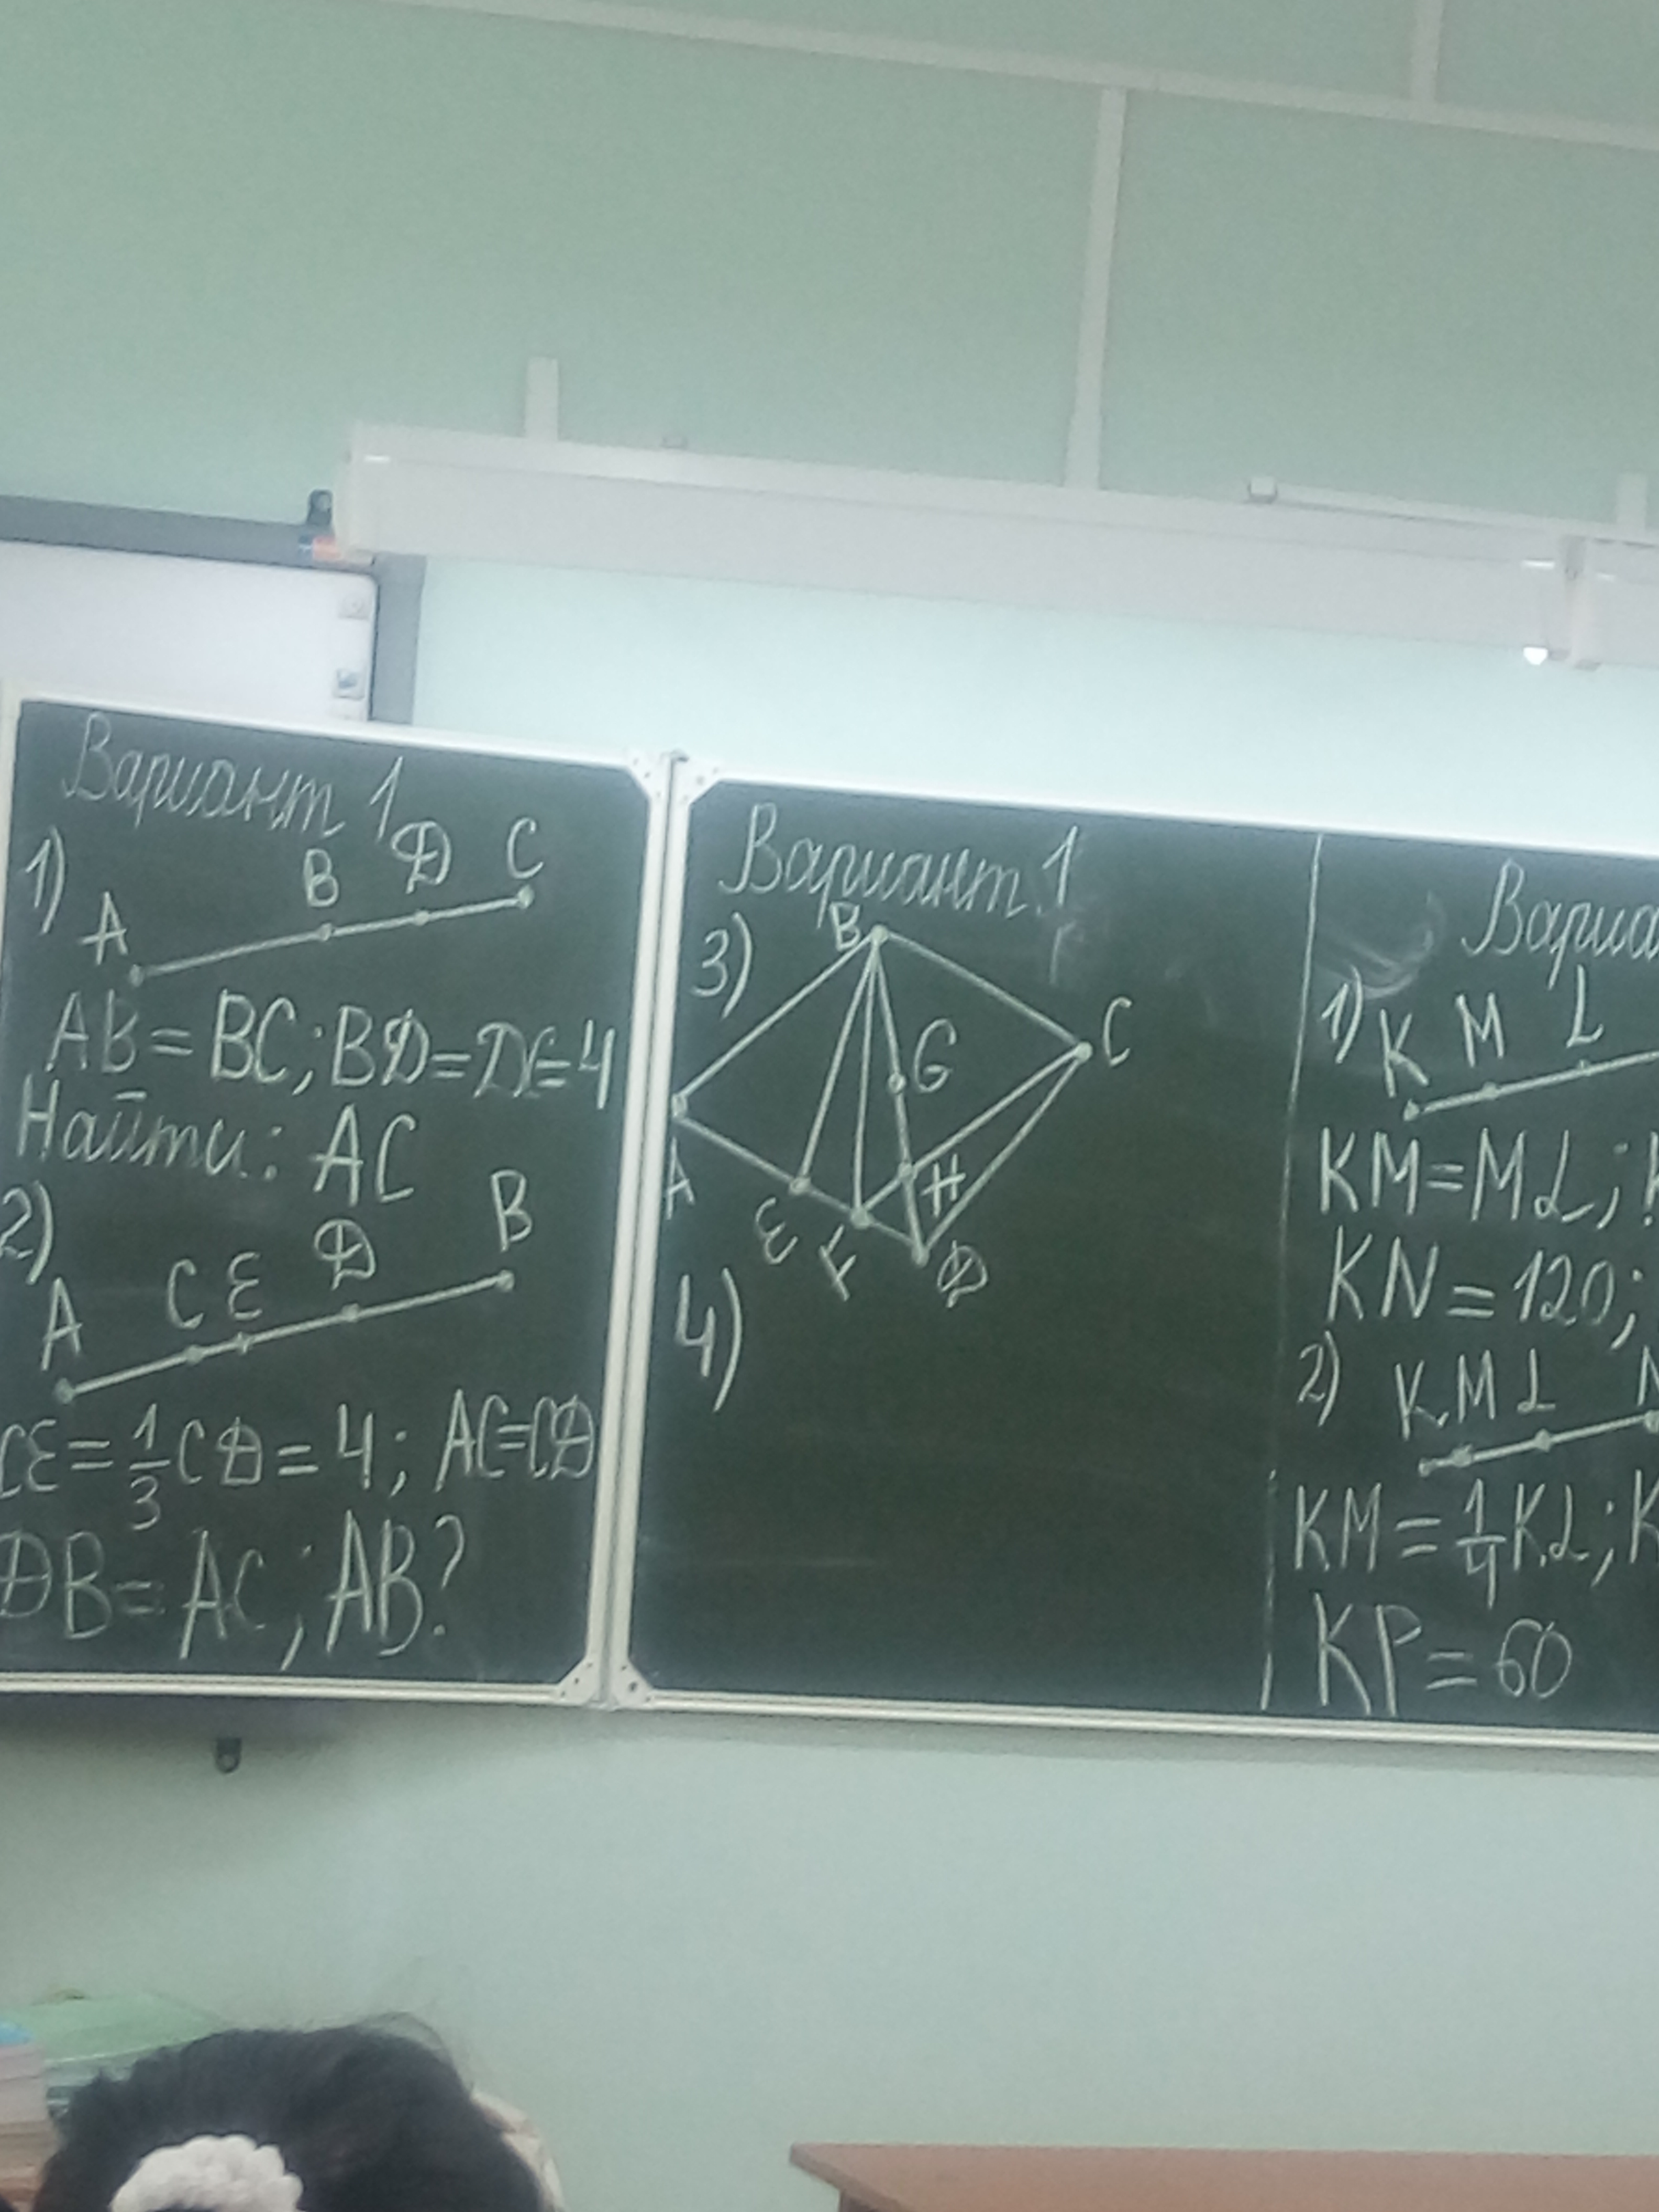 Вариант 1
1)
A B D C
AB = BC; BD = DC = 4
Найти: AC
2)
A C E D B
CE = 1/3 CD = 4; AC = CD
DB = AC; AB?
Вариант 1
3)
B
C
G
A
H
E
F
D
4)
1)
K M L
KM = ML;
KN = 120;
2)
K M L
KM = 1/4 KL; K
KP = 60